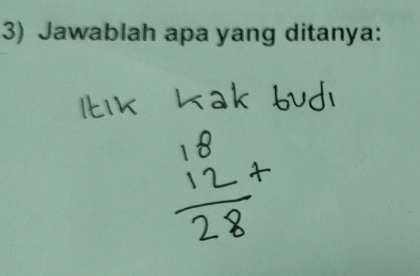 3) Jawablah apa yang ditanya:
Itik kak budi
18
12 +
28